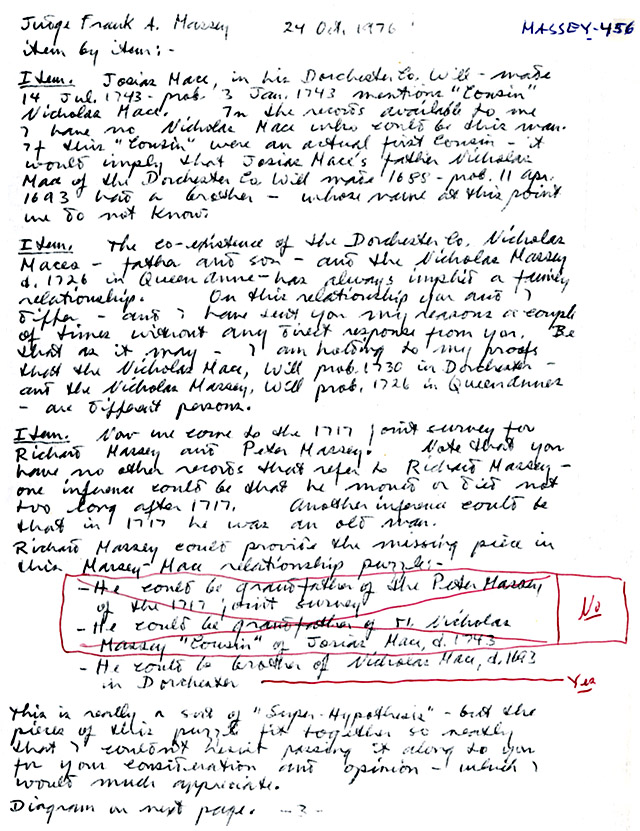 Judge Frank A. Massey 24 Oct. 1976 MASSEY-456
item by item:-
Item. Josias Mace, in his Dorchester Co. Will - made
14 Jul. 1743 - prob. 3 Jan. 1743 mentions "Cousin"
Nicholas Mace. In the records available to me
I have no Nicholas Mace who could be this man.
If this "Cousin" were an actual first Cousin - it
would imply that Josias Mace's father Nicholas
Mace of the Dorchester Co. Will made 1688 - prob. 11 Apr.
1693 had a brother - whose name at this point
we do not know.
Item. The co-existence of the Dorchester Co. Nicholas
Maces - father and son - and the Nicholas Massey
d. 1726 in Queen Anne - has always implied a family
relationship. On this relationship you and I
differ - and I have sent you my reasons a couple
of times without any direct response from you. Be
that as it may - I am holding to my proofs
that the Nicholas Mace, Will prob. 1730 in Dorchester -
and the Nicholas Massey, Will prob. 1726 in Queen Annes
- are different persons.
Item. Now we come to the 1717 joint survey for
Richard Massey and Peter Massey. Note that you
have no other records that refer to Richard Massey -
one inference could be that he moved or died not
too long after 1717. Another inference could be
that in 1717 he was an old man.
Richard Massey could provide the missing piece in
this Massey-Mace relationship puzzle:-
- He could be grandfather of the Peter Massey
of the 1717 joint survey
- He could be grandfather of Nicholas
Massey "Cousin" of Josias Mace, d. 1743
No
- He could be brother of Nicholas Mace, d. 1693
in Dorchester Yes
This is really a sort of "Super-Hypothesis" - but the
pieces of this puzzle fit together so neatly
that I couldn't resist passing it along to you
for your consideration and opinion - which I
would much appreciate.
Diagram on next page. -3-